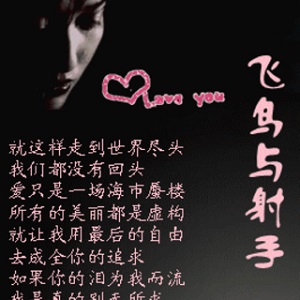 Love you
飞鸟与射手
就这样走到世界尽头
我们都没有回头
爱只是一场海市蜃楼
所有的美丽都是虚构
就让我用最后的自由
去成全你的追求
如果你的泪为我而流
我是真的别无所求